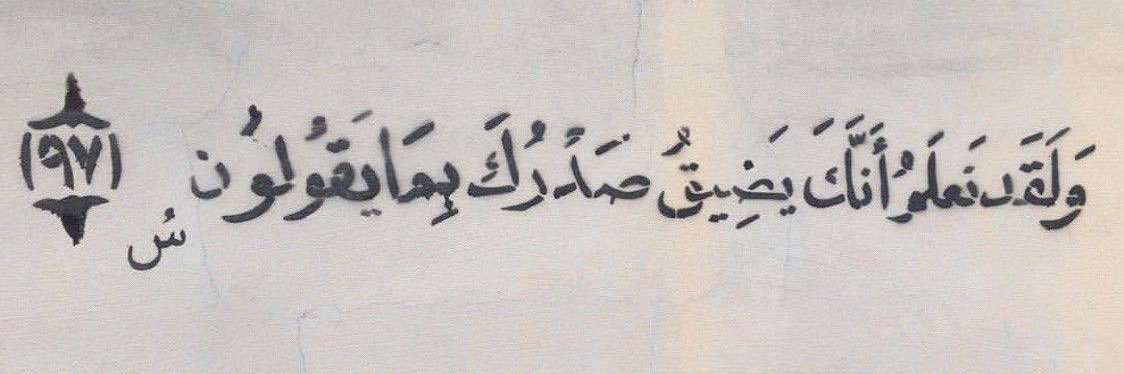 وَلَقَد نَعلَمُ أَنَّكَ يَضِيقُ صَدرُكَ بِمَا يَقُولُونَ (٩٧)
سُ